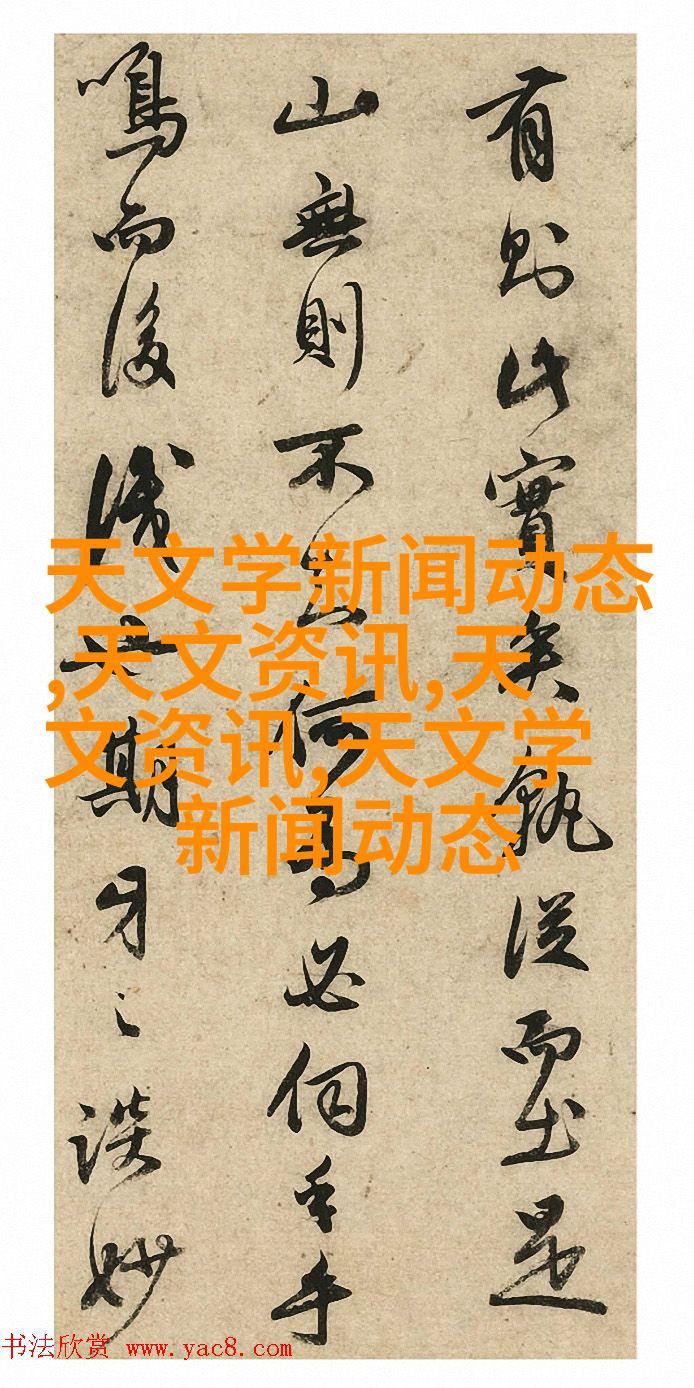 有則此實矣孰從而出是
山無則不何必伺手乎
鳴而後期牙之談妙
天文学新闻动态
,天文资讯,天
文资讯,天文学
新闻动态
书法欣赏 www.yac8.com